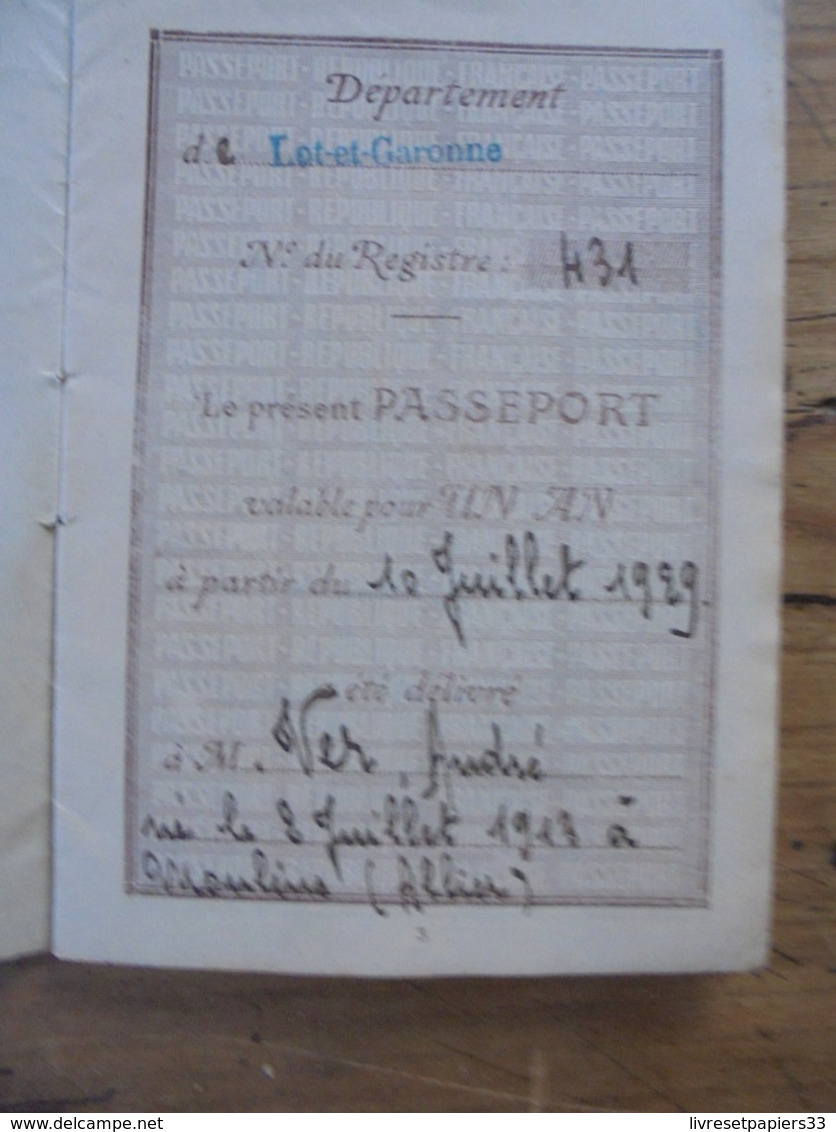 Département
de Lot-et-Garonne
N.º du Registre : 431
Le présent PASSEPORT
valable pour UN AN
à partir du 10 Juillet 1929.
a été délivré
à M. Ver, André
né le 2 Juillet 1913 à
Moulins (Allier)
3
www.delcampe.net
livresetpapiers33